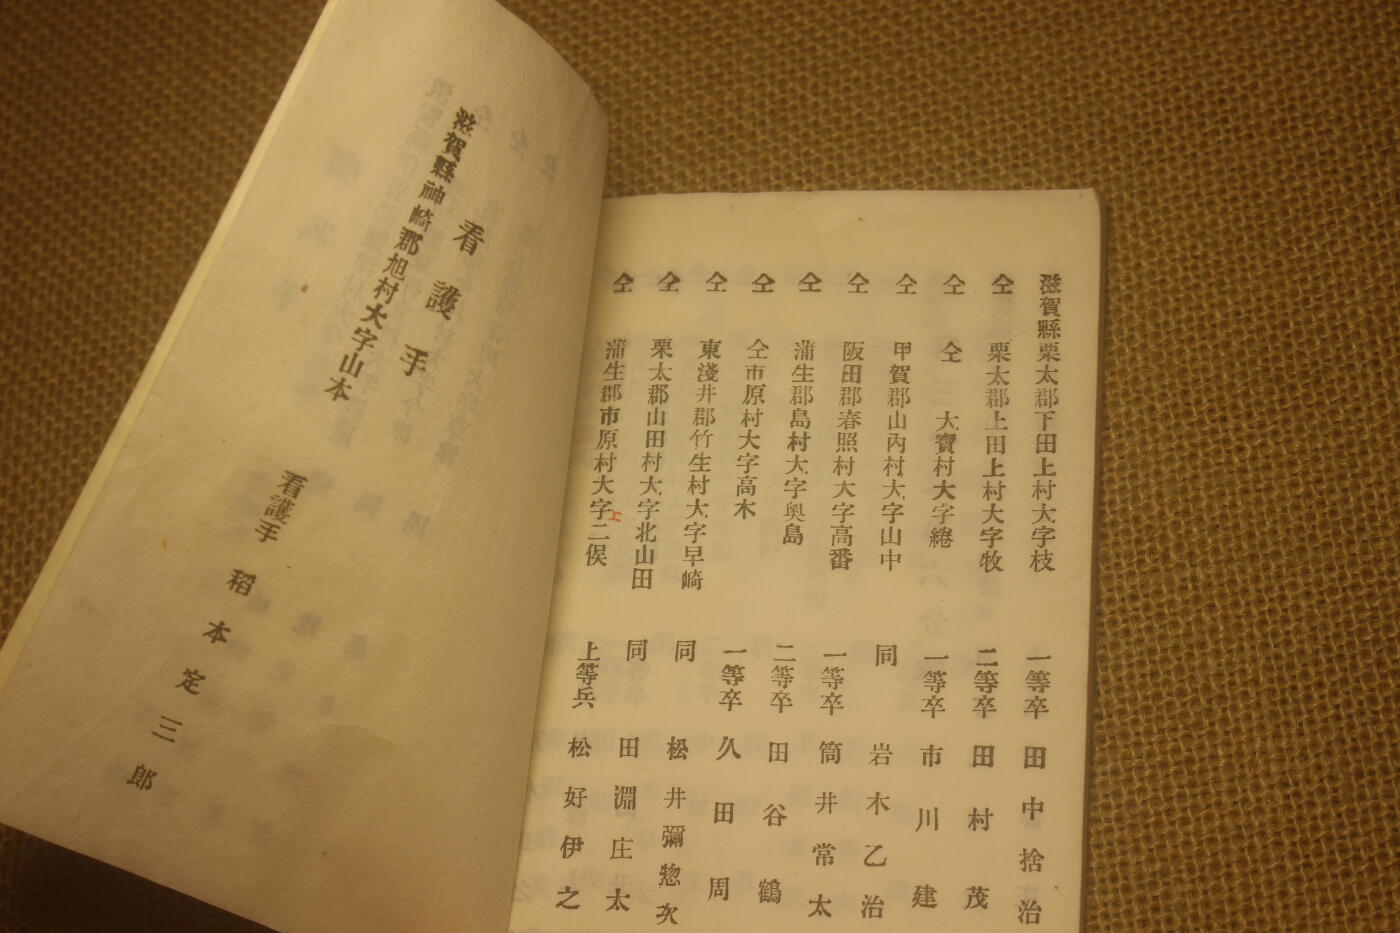 滋賀縣栗太郡下田上村大字枝 一等卒 田中捨治
仝 栗太郡上田上村大字牧 二等卒 田村茂
仝 仝 大寶村大字綣 一等卒 市川建
仝 甲賀郡山內村大字山中 同 岩木乙治
仝 阪田郡春照村大字高番 一等卒 筒井常太
仝 蒲生郡島村大字奧島 二等卒 田谷鶴
仝 仝市原村大字高木 一等卒 久田周
仝 東淺井郡竹生村大字早崎 同 松井彌惣次
仝 栗太郡山田村大字北山田 同 田淵庄太
仝 蒲生郡市原村大字二俣 上等兵 松好伊之
看護手
滋賀縣神崎郡旭村大字山本
看護手 稻本定三郎